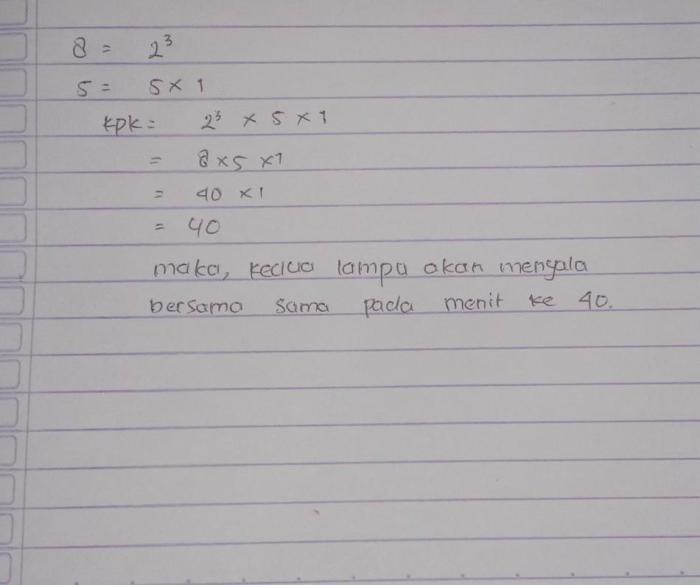 8 = 2³
5 = 5 × 1
kpk = 2³ × 5 × 1
= 8 × 5 × 1
= 40 × 1
= 40
maka, kedua lampu akan menyala
bersama sama pada menit ke 40.